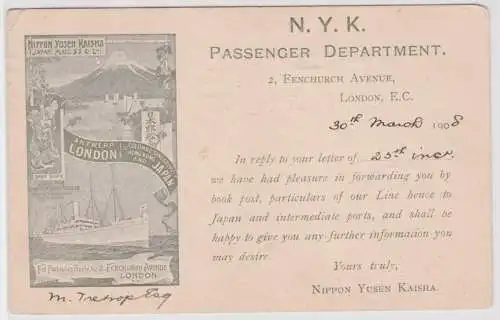 N. Y. K.
PASSENGER DEPARTMENT.
2, FENCHURCH AVENUE,
LONDON, E.C.
30th March 1908
In reply to your letter of 25th inst.
we have had pleasure in forwarding you by
book post, particulars of our Line hence to
Japan and intermediate ports, and shall be
happy to give you any further information you
may desire.
Yours truly,
NIPPON YUSEN KAISHA.
NIPPON YUSEN KAISHA
JAPAN MAIL S.S. Co Ltd
日本郵船
ANTWERP
LONDON
JAPAN
FENCHURCH AVENUE
LONDON
M. Tretrop Esq